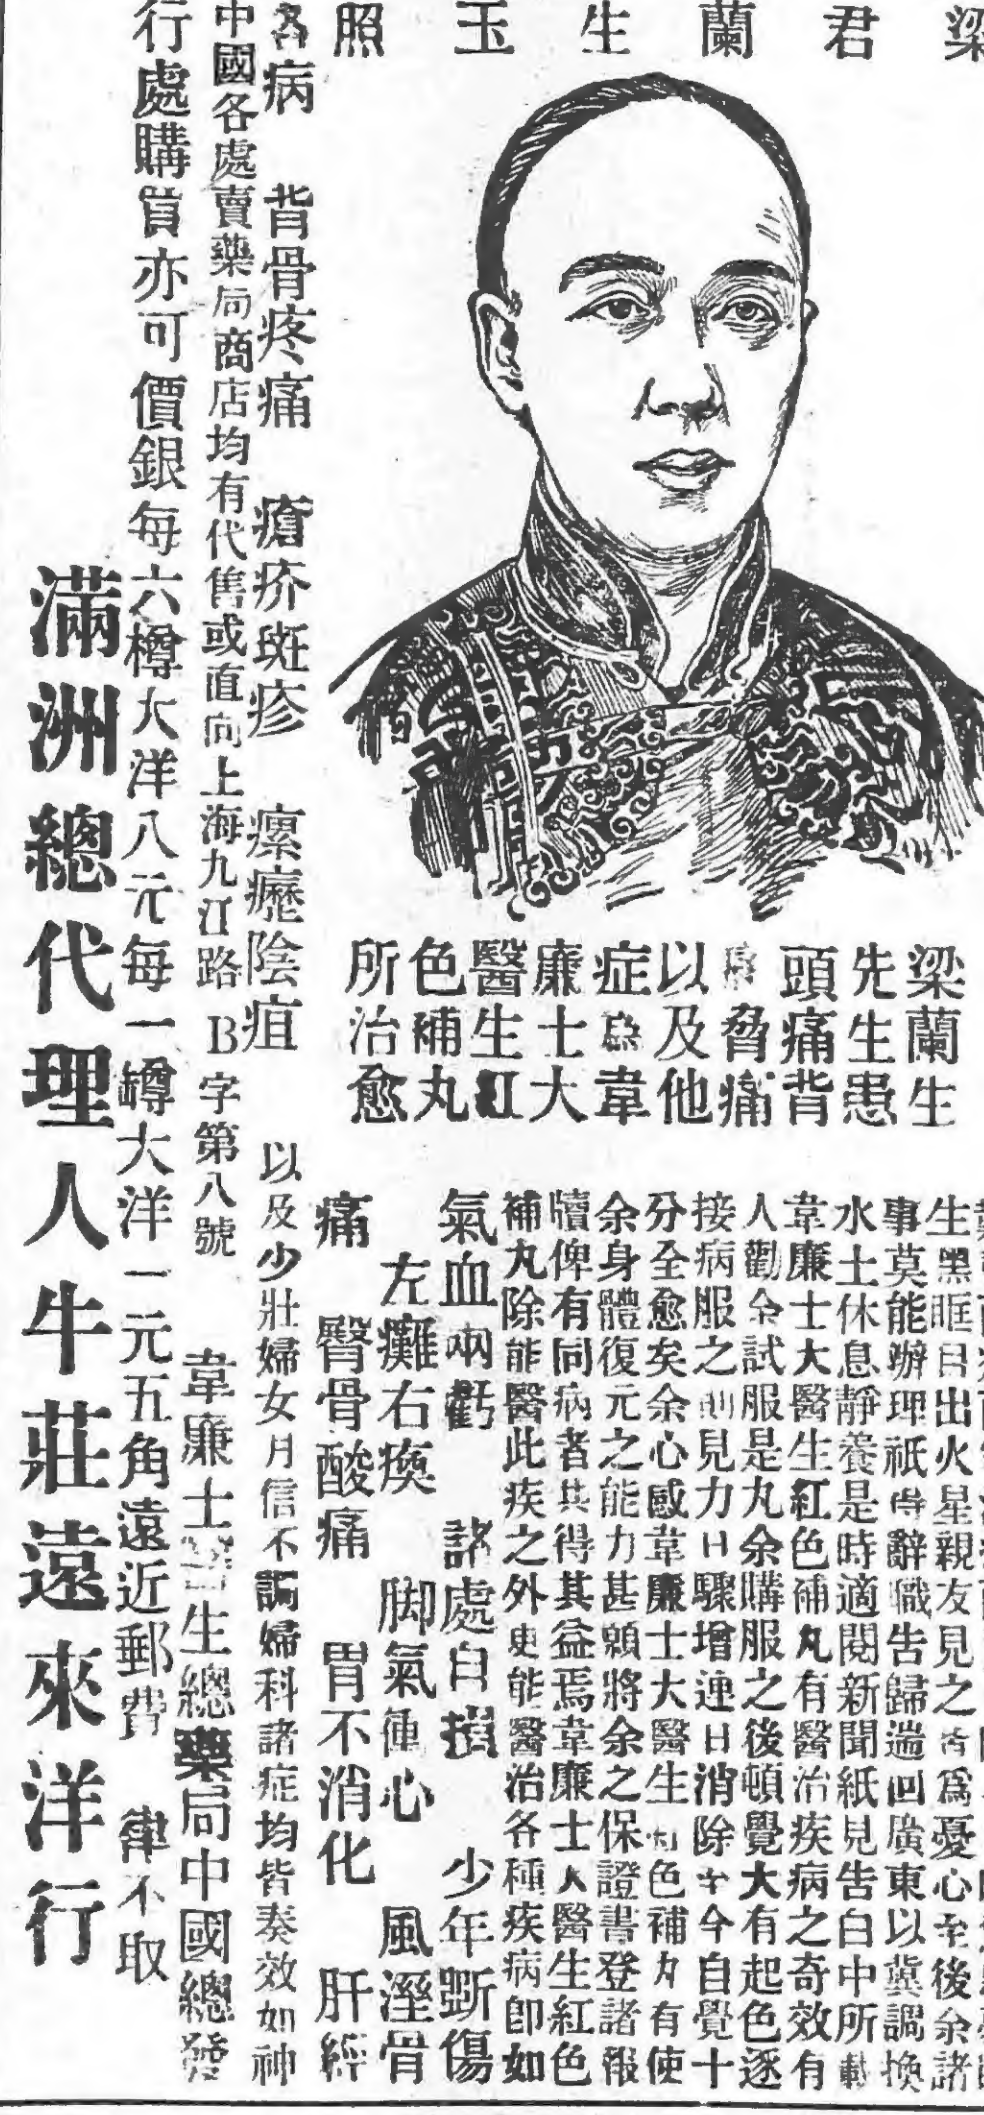 梁君蘭生玉照
梁蘭生
先生患
頭痛背
脅痛
以及他
症為韋
廉士大
醫生紅
色補丸
所治愈
生黑眶目出火星親友見之皆為憂心至後余諸
事莫能辦理祇得辭職告歸遄回廣東以冀調換
水土休息靜養是時適閱新聞紙見告白中所載
韋廉士大醫生紅色補丸有醫治疾病之奇效有
人勸余試服是丸余購服之後頓覺大有起色逐
接病服之則見力日驟增連日消除至今自覺十
分全愈矣余心感韋廉士大醫生紅色補丸有使
余身體復元之能力甚願將余之保證書登諸報
牘俾有同病者共得其益焉韋廉士大醫生紅色
補丸除能醫此疾之外更能醫治各種疾病即如
氣血兩虧 諸處自損 少年斲傷
左癱右瘓 脚氣衝心 風溼骨
痛 臀骨酸痛 胃不消化 肝經
各病 背骨疼痛 瘡疥斑疹 瘰癧陰疽 以及少壯婦女月信不調婦科諸症均皆奏效如神
中國各處賣藥局商店均有代售或直向上海九江路B字第八號 韋廉士醫生總藥局中國總發
行處購買亦可價銀每六樽大洋八元每一罇大洋一元五角遠近郵費 律不取
滿洲總代理人牛莊遠來洋行